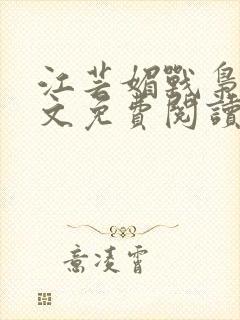 江芸媚戰梟
文免費閱讀
意凌霄